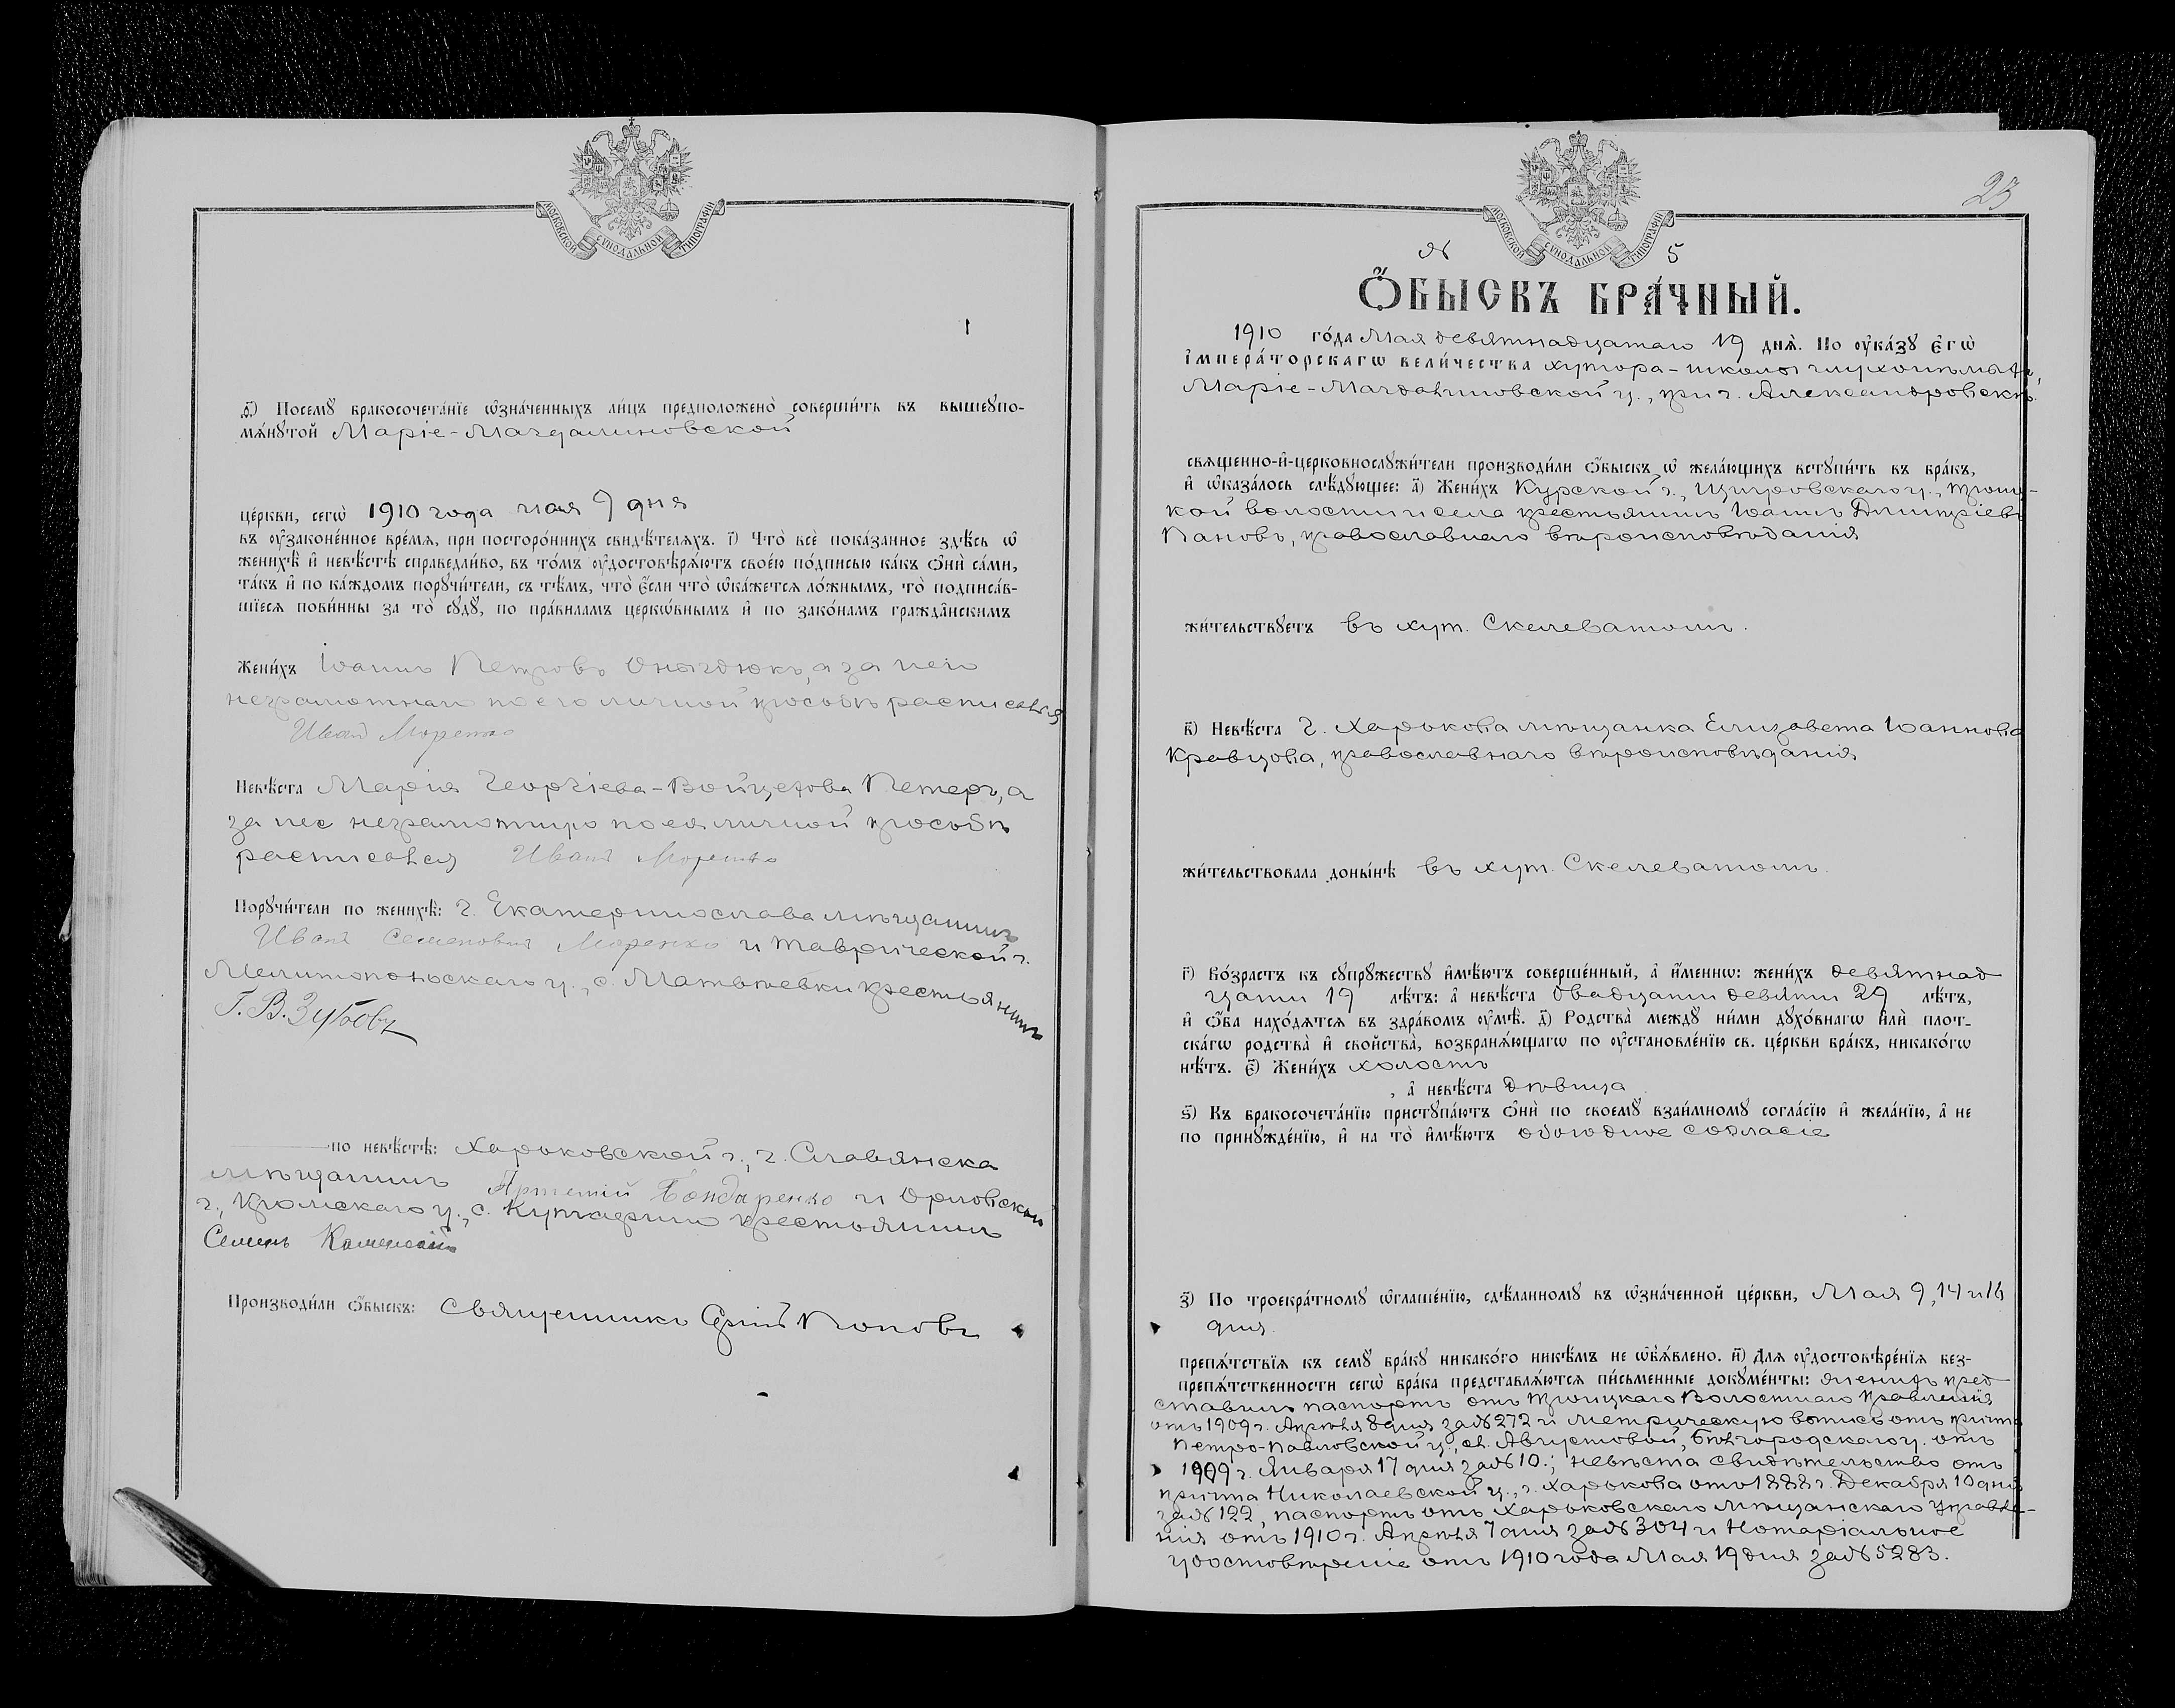 МОСКОВСКОЙ СѴНОДАЛЬНОЙ ТИПОГРАФІИ
ѳ҃) Посемꙋ̀ бракосочета́нїе ѡ҆зна́ченныхъ ли́цъ предположено̀ соверши́ть въ вышеꙋпо-
мѧ́нꙋтой Маріе-Магдалиновской
це́ркви, сегѡ̀ 1910 года мая 9 дня
въ ᲂу҆зако́ненное вре́мѧ, при посторо́ннихъ свидѣ́телѧхъ. і҃) Что̀ всѐ пока́занное здѣ́сь ѡ҆
женихѣ̀ и҆ невѣ́стѣ справедли́во, въ то́мъ ᲂу҆достовѣрѧ́ютъ свое́ю по́дписью ка́къ ѻ҆нѝ са́ми,
та́къ и҆ по ка́ждомъ порꙋчи́тели, съ тѣ́мъ, что̀ є҆́сли что̀ ѡ҆ка́жетсѧ ло́жнымъ, то̀ подписа́в-
шїесѧ пови́нны за то̀ сꙋдꙋ̀, по пра́виламъ церко́внымъ и҆ по зако́намъ гражда́нскимъ
Жени́хъ Іоаннъ Петровъ Онагдюкъ, а за него
неграмотнаго по его личной просьбѣ расписался
Иван Моренко
Невѣ́ста Марія Георгіева-Войцехова Петеръ, а
за нее неграмотную по ея личной просьбѣ
расписался Иванъ Моренко
Порꙋчи́тели по женихѣ̀: г. Екатеринослава мѣщанинъ
Иванъ Семеновичъ Моренко и Таврической г.
Мелитопольскаго у., с. Матвѣевки крестьянинъ
Г. В. Зубовъ
по невѣ́стѣ: Харьковской г., г. Славянска
мѣщанинъ Артемій Бондаренко и Орловской
г., Кромскаго у., с. крестьянинъ
Семенъ Каменскій
Производи́ли ѻ҆́быскъ: Священникъ Поповъ
23
МОСКОВСКОЙ СѴНОДАЛЬНОЙ ТИПОГРАФІИ
№ 5
Ѻ҆́БЫСКЪ БРА́ЧНЫЙ.
1910 го́да Мая девятнадцатаго 19 днѧ̀. По ᲂу҆ка́зꙋ є҆гѡ̀
і҆мпера́торскагѡ вели́чества хутора-школы глухонѣмыхъ,
Маріе-Магдалиновской ц., при г. Александровскѣ
свѧщенно-и҆-церковнослꙋжи́тели производи́ли ѻ҆́быскъ ѡ҆ жела́ющихъ встꙋпи́ть въ бра́къ,
и҆ ѡ҆каза́лось слѣ́дꙋющее: а҃) Жени́хъ Курской г., Щигровскаго у., Троиц-
кой волости и села крестьянинъ Іоаннъ Дмитріевъ
Пановъ, православнаго вѣроисповѣданія
жи́тельствꙋетъ въ хут. Скелеватомъ.
в҃) Невѣ́ста г. Харькова мѣщанка Елизавета Іоаннова
Кравцова, православнаго вѣроисповѣданія
жи́тельствовала доны́нѣ въ хут. Скелеватомъ.
г҃) Во́зрастъ къ сꙋпрꙋ́жествꙋ и҆мѣ́ютъ соверше́нный, а҆ и҆́меннѡ: жени́хъ девятнад
цати 19 лѣ́тъ: а҆ невѣ́ста двадцати девяти 29 лѣ́тъ,
и҆ ѻ҆́ба нахо́дѧтсѧ въ здра́вомъ ᲂу҆мѣ̀. д҃) Родства̀ междꙋ ни́ми дꙋхо́внагѡ и҆лѝ плот-
ска́гѡ родства̀ и҆ свойства̀, возбранѧ́ющагѡ по ᲂу҆становле́нїю св. це́ркви бра́къ, никако́гѡ
нѣ́тъ. є҃) Жени́хъ холостъ
, а҆ невѣ́ста дѣвица
ѕ҃) Къ бракосочета́нїю пристꙋпа́ютъ ѻ҆нѝ по своемꙋ̀ взаи́мномꙋ согла́сїю и҆ жела́нїю, а҆ не
по принꙋжде́нїю, и҆ на то̀ и҆мѣ́ютъ обоюдное согласіе
з҃) По троекра́тномꙋ ѡ҆глаше́нїю, сдѣ́ланномꙋ въ ѡ҆зна́ченной це́ркви, Мая 9, 14 и 16
дня.
препѧ́тствїѧ къ семꙋ̀ бра́кꙋ никако́го никѣ́мъ не ѡ҆б̾ѧ́влено. и҃) Длѧ ᲂу҆достовѣре́нїѧ без-
препѧ́тственности сегѡ̀ бра́ка представлѧ́ютсѧ пи́сьменные докꙋме́нты: женихъ пред
ставилъ паспортъ отъ Троицкаго Волостнаго правленія
отъ 1909 г. Апрѣля 8 дня за № 272 и метрическую выпись отъ причта
Петро-Павловской ц., сл. Августовой, Бѣлгородскаго у. отъ
1909 г. Января 17 дня за № 10.; невѣста свидѣтельство отъ
причта Николаевской ц., г. Харькова отъ 1888 г. Декабря 10 дня
за № 122, паспортъ отъ Харьковскаго мѣщанскаго управле-
нія отъ 1910 г. Апрѣля 7 дня за № 304 и Нотаріальное
удостовѣреніе отъ 1910 года Мая 19 дня за № 5283.